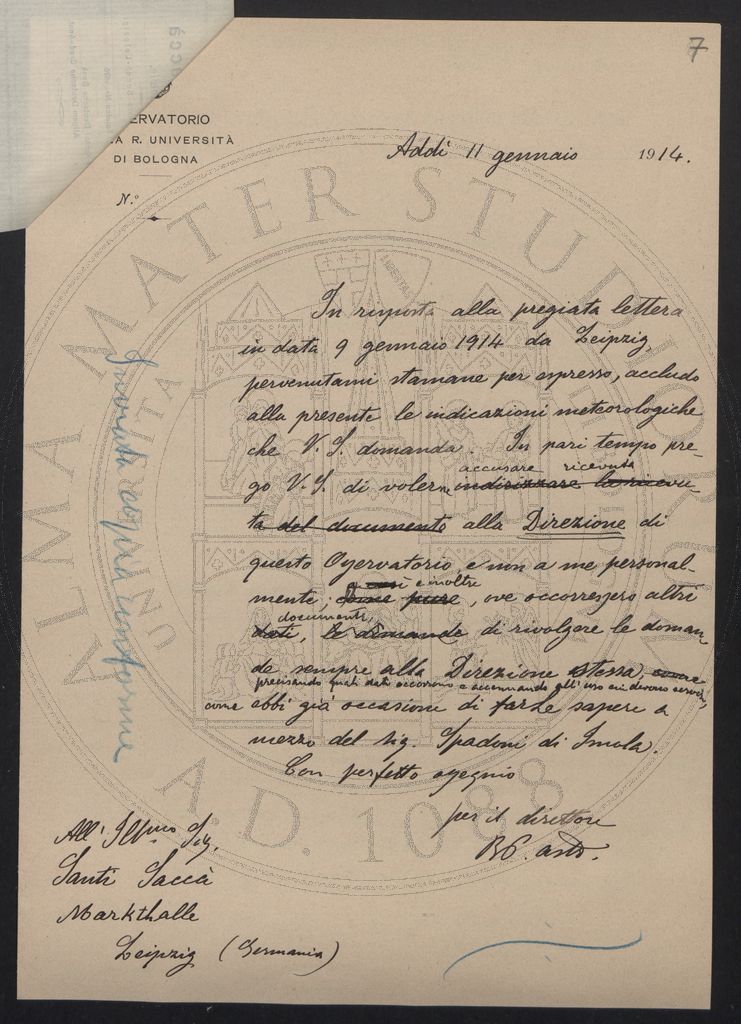 7
ERVATORIO
A R. UNIVERSITÀ
DI BOLOGNA
N.º
Addì 11 gennaio 1914.
In risposta alla pregiata lettera
in data 9 gennaio 1914 da Leipzig,
pervenutami stamane per espresso, accludo
alla presente le indicazioni meteorologiche
che V. S. domanda. In pari tempo pre-
accusare ricevuta
go V. S. di volerne indirizzare la ricevu-
ta del documento alla Direzione di
questo Osservatorio, e non a me personal-
e inoltre
mente; pure, ove occorressero altri
documenti,
dati, le domande di rivolgere le doman-
de sempre alla Direzione stessa, come
precisando quali dati occorrono e accennando all'uso cui devono servire,
come ebbi già occasione di farle sapere a
mezzo del sig. Spadoni di Imola.
Con perfetto ossequio
per il direttore
All' Ill.mo Sig.
Santi Saccà
Markthalle
Leipzig (Germania)
Inviata copia conforme
ALMA MATER STUDIORUM
A.D. 1088
LIBERTAS